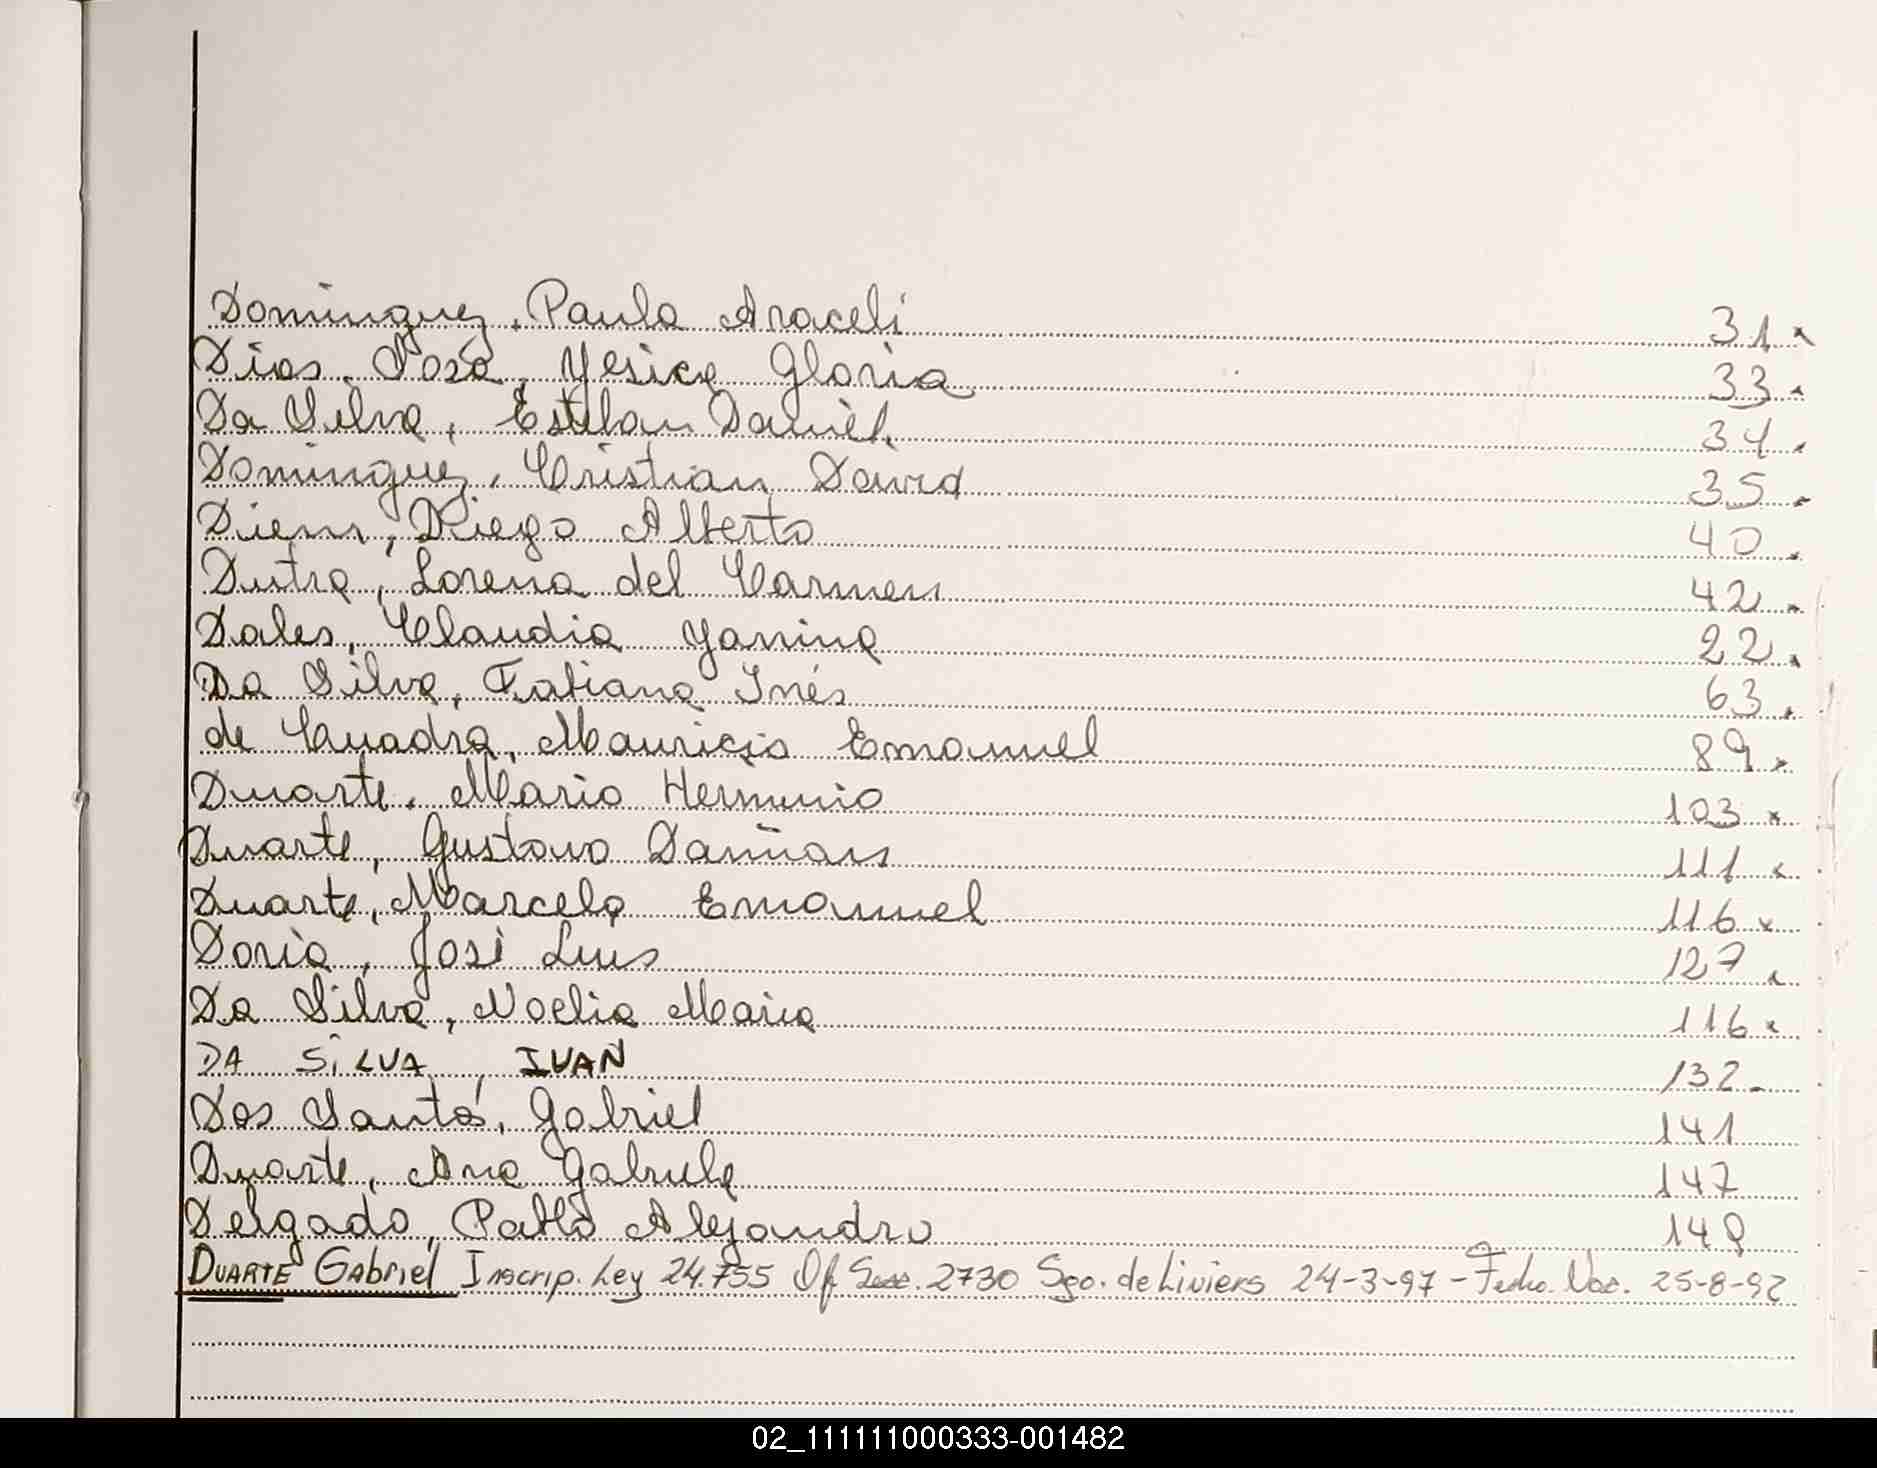 Dominguez, Paula Araceli 31
Dias Sosa, Yesica Gloria 33
Da Silva, Esteban Daniel 34
Dominguez, Cristian David 35
Diem, Diego Alberto 40
Dutra, Lorena del Carmen 42
Dales, Claudia Yanina 22
Da Silva, Fabiana Inés 63
de Cuadra, Mauricio Emanuel 89
Duarte, Mario Herminio 103
Duarte, Gustavo Damian 111
Duarte, Marcelo Emanuel 116
Doria, José Luis 127
Da Silva, Noelia Maria 116
DA SILVA, IVAN 132
Dos Santos, Gabriel 141
Duarte, Ana Gabriela 147
Delgado, Pablo Alejandro 148
DUARTE GAbriel Inscrip. Ley 24.755 Of 2730 Sgo. de Liniers 24-3-97 - Fecha Nac. 25-8-92
02_111111000333-001482